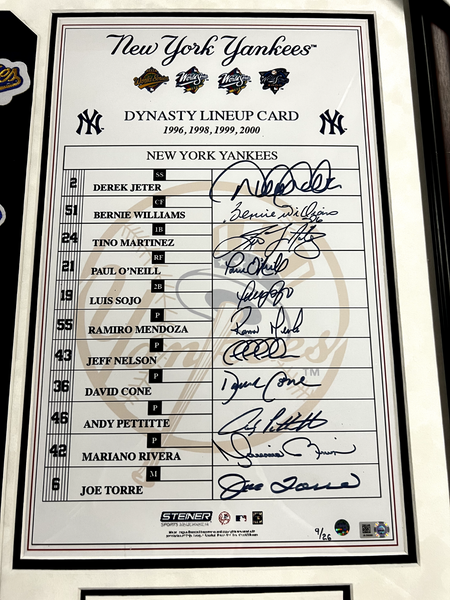 New York Yankees™
DYNASTY LINEUP CARD
1996, 1998, 1999, 2000
NEW YORK YANKEES
2 DEREK JETER SS
51 BERNIE WILLIAMS CF Bernie Williams
24 TINO MARTINEZ 1B
21 PAUL O'NEILL RF Paul O'Neill
19 LUIS SOJO 2B
55 RAMIRO MENDOZA P
43 JEFF NELSON P
36 DAVID CONE P David Cone
46 ANDY PETTITTE P
42 MARIANO RIVERA P
6 JOE TORRE M Joe Torre
Yankees
TM
STEINER
SPORTS MEMORABILIA
9/26